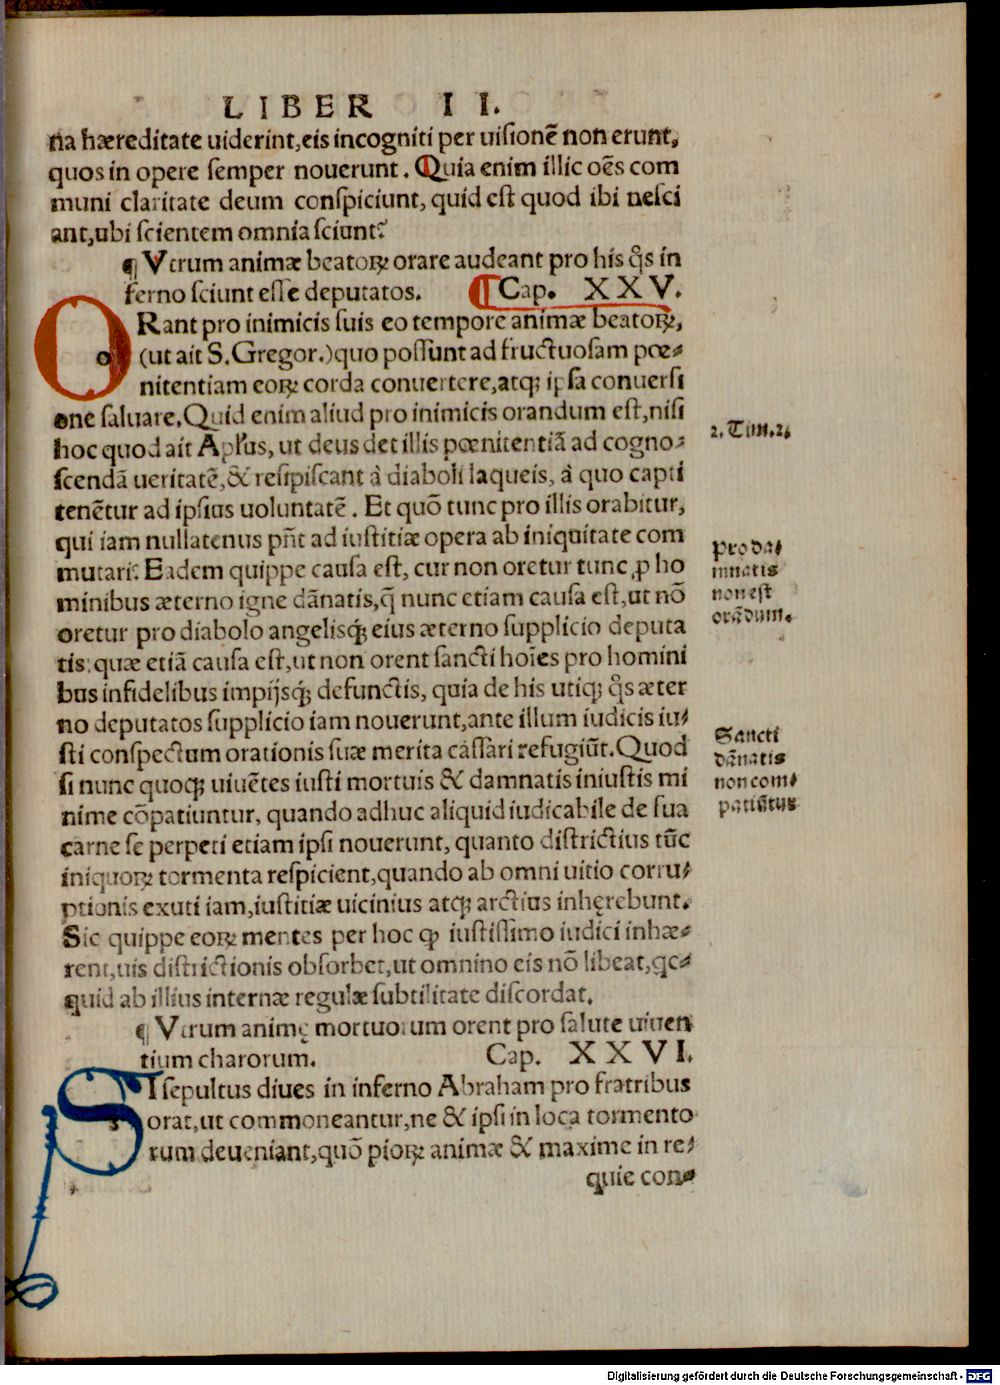 LIBER II.
na hæreditate uiderint,eis incogniti per uisionē non erunt,
quos in opere semper nouerunt. Quia enim illic oēs com
muni claritate deum conspiciunt, quid est quod ibi nesci
ant,ubi scientem omnia sciunt?
¶ Vtrum animæ beatoꝝ orare audeant pro his q̄s in
ferno sciunt esse deputatos. Cap. XXV.
ORant pro inimicis suis eo tempore animæ beatoꝝ,
(ut ait S.Gregor.)quo possunt ad fructuosam pœ-
nitentiam eoꝝ corda conuertere,atq; ipsa conuersi
one saluare.Quid enim aliud pro inimicis orandum est,nisi
hoc quod ait Apľus, ut deus det illis pœnitentiā ad cogno-
scendā ueritatē,& resipiscant à diaboli laqueis, à quo capti
tenētur ad ipsius uoluntatē. Et quō tunc pro illis orabitur,
qui iam nullatenus pn̄t ad iustitiæ opera ab iniquitate com
mutari? Eadem quippe causa est, cur non oretur tunc ꝓ ho
minibus æterno igne dānatis,q̄ nunc etiam causa est,ut nō
oretur pro diabolo angelisq́; eius æterno supplicio deputa
tis:quæ etiā causa est,ut non orent sancti hoīes pro homini
bus infidelibus impijsq́; defunctis, quia de his utiq; q̄s æter
no deputatos supplicio iam nouerunt,ante illum iudicis iu-
sti conspectum orationis suæ merita cassari refugiūt.Quod
si nunc quoq; uiuētes iusti mortuis & damnatis iniustis mi
nime cōpatiuntur, quando adhuc aliquid iudicabile de sua
carne se perpeti etiam ipsi nouerunt, quanto districtius tūc
iniquoꝝ tormenta respicient,quando ab omni uitio corru-
ptionis exuti iam,iustitiæ uicinius atq; arctius inhęrebunt.
Sic quippe eoꝝ mentes per hoc ꝙ iustissimo iudici inhæ-
rent,uis districtionis obsorbet,ut omnino eis nō libeat,qc-
quid ab illius internæ regulæ subtilitate discordat.
¶ Vtrum animę mortuorum orent pro salute uiuen
tium charorum. Cap. XXVI.
SI sepultus diues in inferno Abraham pro fratribus
orat,ut commoneantur,ne & ipsi in loca tormento
rum deueniant,quō pioꝝ animæ & maxime in re-
quie con-
2.Tim.2.
Pro da-
mnatis
non est
orādum.
Sancti
dānatis
non com-
patiūtur
Digitalisierung gefördert durch die Deutsche Forschungsgemeinschaft - DFG